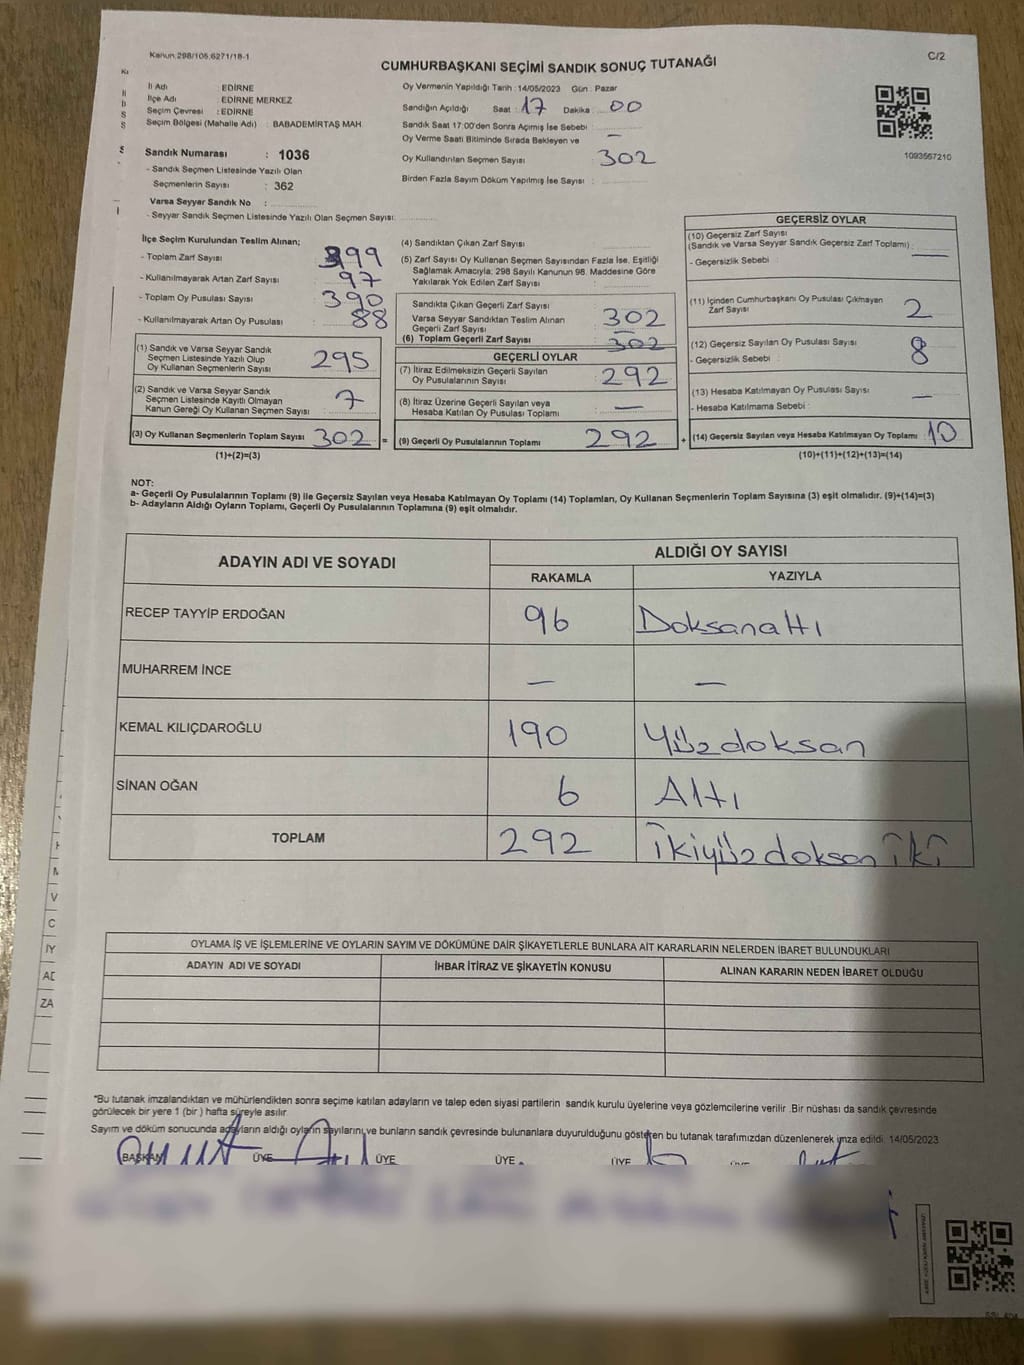 Kanun 298/105,6271/18-1
CUMHURBAŞKANI SEÇİMİ SANDIK SONUÇ TUTANAĞI
C/2
İl Adı : EDİRNE
İlçe Adı : EDİRNE MERKEZ
Seçim Çevresi : EDİRNE
Seçim Bölgesi (Mahalle Adı) : BABADEMİRTAŞ MAH
Sandık Numarası : 1036
- Sandık Seçmen Listesinde Yazılı Olan
Seçmenlerin Sayısı : 362
Varsa Seyyar Sandık No :
- Seyyar Sandık Seçmen Listesinde Yazılı Olan Seçmen Sayısı:
Oy Vermenin Yapıldığı Tarih : 14/05/2023 Gün : Pazar
Sandığın Açıldığı Saat : 17 Dakika : 00
Sandık Saat 17:00'den Sonra Açımış İse Sebebi :
Oy Verme Saati Bitiminde Sırada Bekleyen ve –
Oy Kullandırılan Seçmen Sayısı : 302
Birden Fazla Sayım Döküm Yapılmış İse Sayısı :
1093567210
İlçe Seçim Kurulundan Teslim Alınan;
- Toplam Zarf Sayısı : 399
- Kullanılmayarak Artan Zarf Sayısı : 97
- Toplam Oy Pusulası Sayısı : 390
- Kullanılmayarak Artan Oy Pusulası : 88
(1) Sandık ve Varsa Seyyar Sandık
Seçmen Listesinde Yazılı Olup
Oy Kullanan Seçmenlerin Sayısı : 295
(2) Sandık ve Varsa Seyyar Sandık
Seçmen Listesinde Kayıtlı Olmayan
Kanun Gereği Oy Kullanan Seçmen Sayısı : 7
(3) Oy Kullanan Seçmenlerin Toplam Sayısı : 302 =
(1)+(2)=(3)
(4) Sandıktan Çıkan Zarf Sayısı :
(5) Zarf Sayısı Oy Kullanan Seçmen Sayısından Fazla İse, Eşitliği
Sağlamak Amacıyla; 298 Sayılı Kanunun 98. Maddesine Göre
Yakılarak Yok Edilen Zarf Sayısı :
Sandıkta Çıkan Geçerli Zarf Sayısı : 302
Varsa Seyyar Sandıktan Teslim Alınan
Geçerli Zarf Sayısı : —
(6) Toplam Geçerli Zarf Sayısı : 302
GEÇERLİ OYLAR
(7) İtiraz Edilmeksizin Geçerli Sayılan
Oy Pusulalarının Sayısı : 292
(8) İtiraz Üzerine Geçerli Sayılan veya
Hesaba Katılan Oy Pusulası Toplamı : —
(9) Geçerli Oy Pusulalarının Toplamı : 292 +
GEÇERSİZ OYLAR
(10) Geçersiz Zarf Sayısı
(Sandık ve Varsa Seyyar Sandık Geçersiz Zarf Toplamı) : —
- Geçersizlik Sebebi :
(11) İçinden Cumhurbaşkanı Oy Pusulası Çıkmayan
Zarf Sayısı : 2
(12) Geçersiz Sayılan Oy Pusulası Sayısı : 8
- Geçersizlik Sebebi :
(13) Hesaba Katılmayan Oy Pusulası Sayısı : —
- Hesaba Katılmama Sebebi :
(14) Geçersiz Sayılan veya Hesaba Katılmayan Oy Toplamı : 10
(10)+(11)+(12)+(13)=(14)
NOT:
a- Geçerli Oy Pusulalarının Toplamı (9) ile Geçersiz Sayılan veya Hesaba Katılmayan Oy Toplamı (14) Toplamları, Oy Kullanan Seçmenlerin Toplam Sayısına (3) eşit olmalıdır. (9)+(14)=(3)
b- Adayların Aldığı Oyların Toplamı, Geçerli Oy Pusulalarının Toplamına (9) eşit olmalıdır.
ADAYIN ADI VE SOYADI
ALDIĞI OY SAYISI
RAKAMLA YAZIYLA
RECEP TAYYİP ERDOĞAN 96 Doksanaltı
MUHARREM İNCE — —
KEMAL KILIÇDAROĞLU 190 Yüzdoksan
SİNAN OĞAN 6 Altı
TOPLAM 292 İkiyüzdoksaniki
OYLAMA İŞ VE İŞLEMLERİNE VE OYLARIN SAYIM VE DÖKÜMÜNE DAİR ŞİKAYETLERLE BUNLARA AİT KARARLARIN NELERDEN İBARET BULUNDUKLARI
ADAYIN ADI VE SOYADI İHBAR İTİRAZ VE ŞİKAYETİN KONUSU ALINAN KARARIN NEDEN İBARET OLDUĞU
"Bu tutanak imzalandıktan ve mühürlendikten sonra seçime katılan adayların ve talep eden siyasi partilerin sandık kurulu üyelerine veya gözlemcilerine verilir .Bir nüshası da sandık çevresinde
görülecek bir yere 1 (bir ) hafta süreyle asılır
Sayım ve döküm sonucunda adayların aldığı oyların sayılarını ve bunların sandık çevresinde bulunanlara duyurulduğunu gösteren bu tutanak tarafımızdan düzenlenerek imza edildi. 14/05/2023
BAŞKAN ÜYE ÜYE ÜYE ÜYE ÜYE